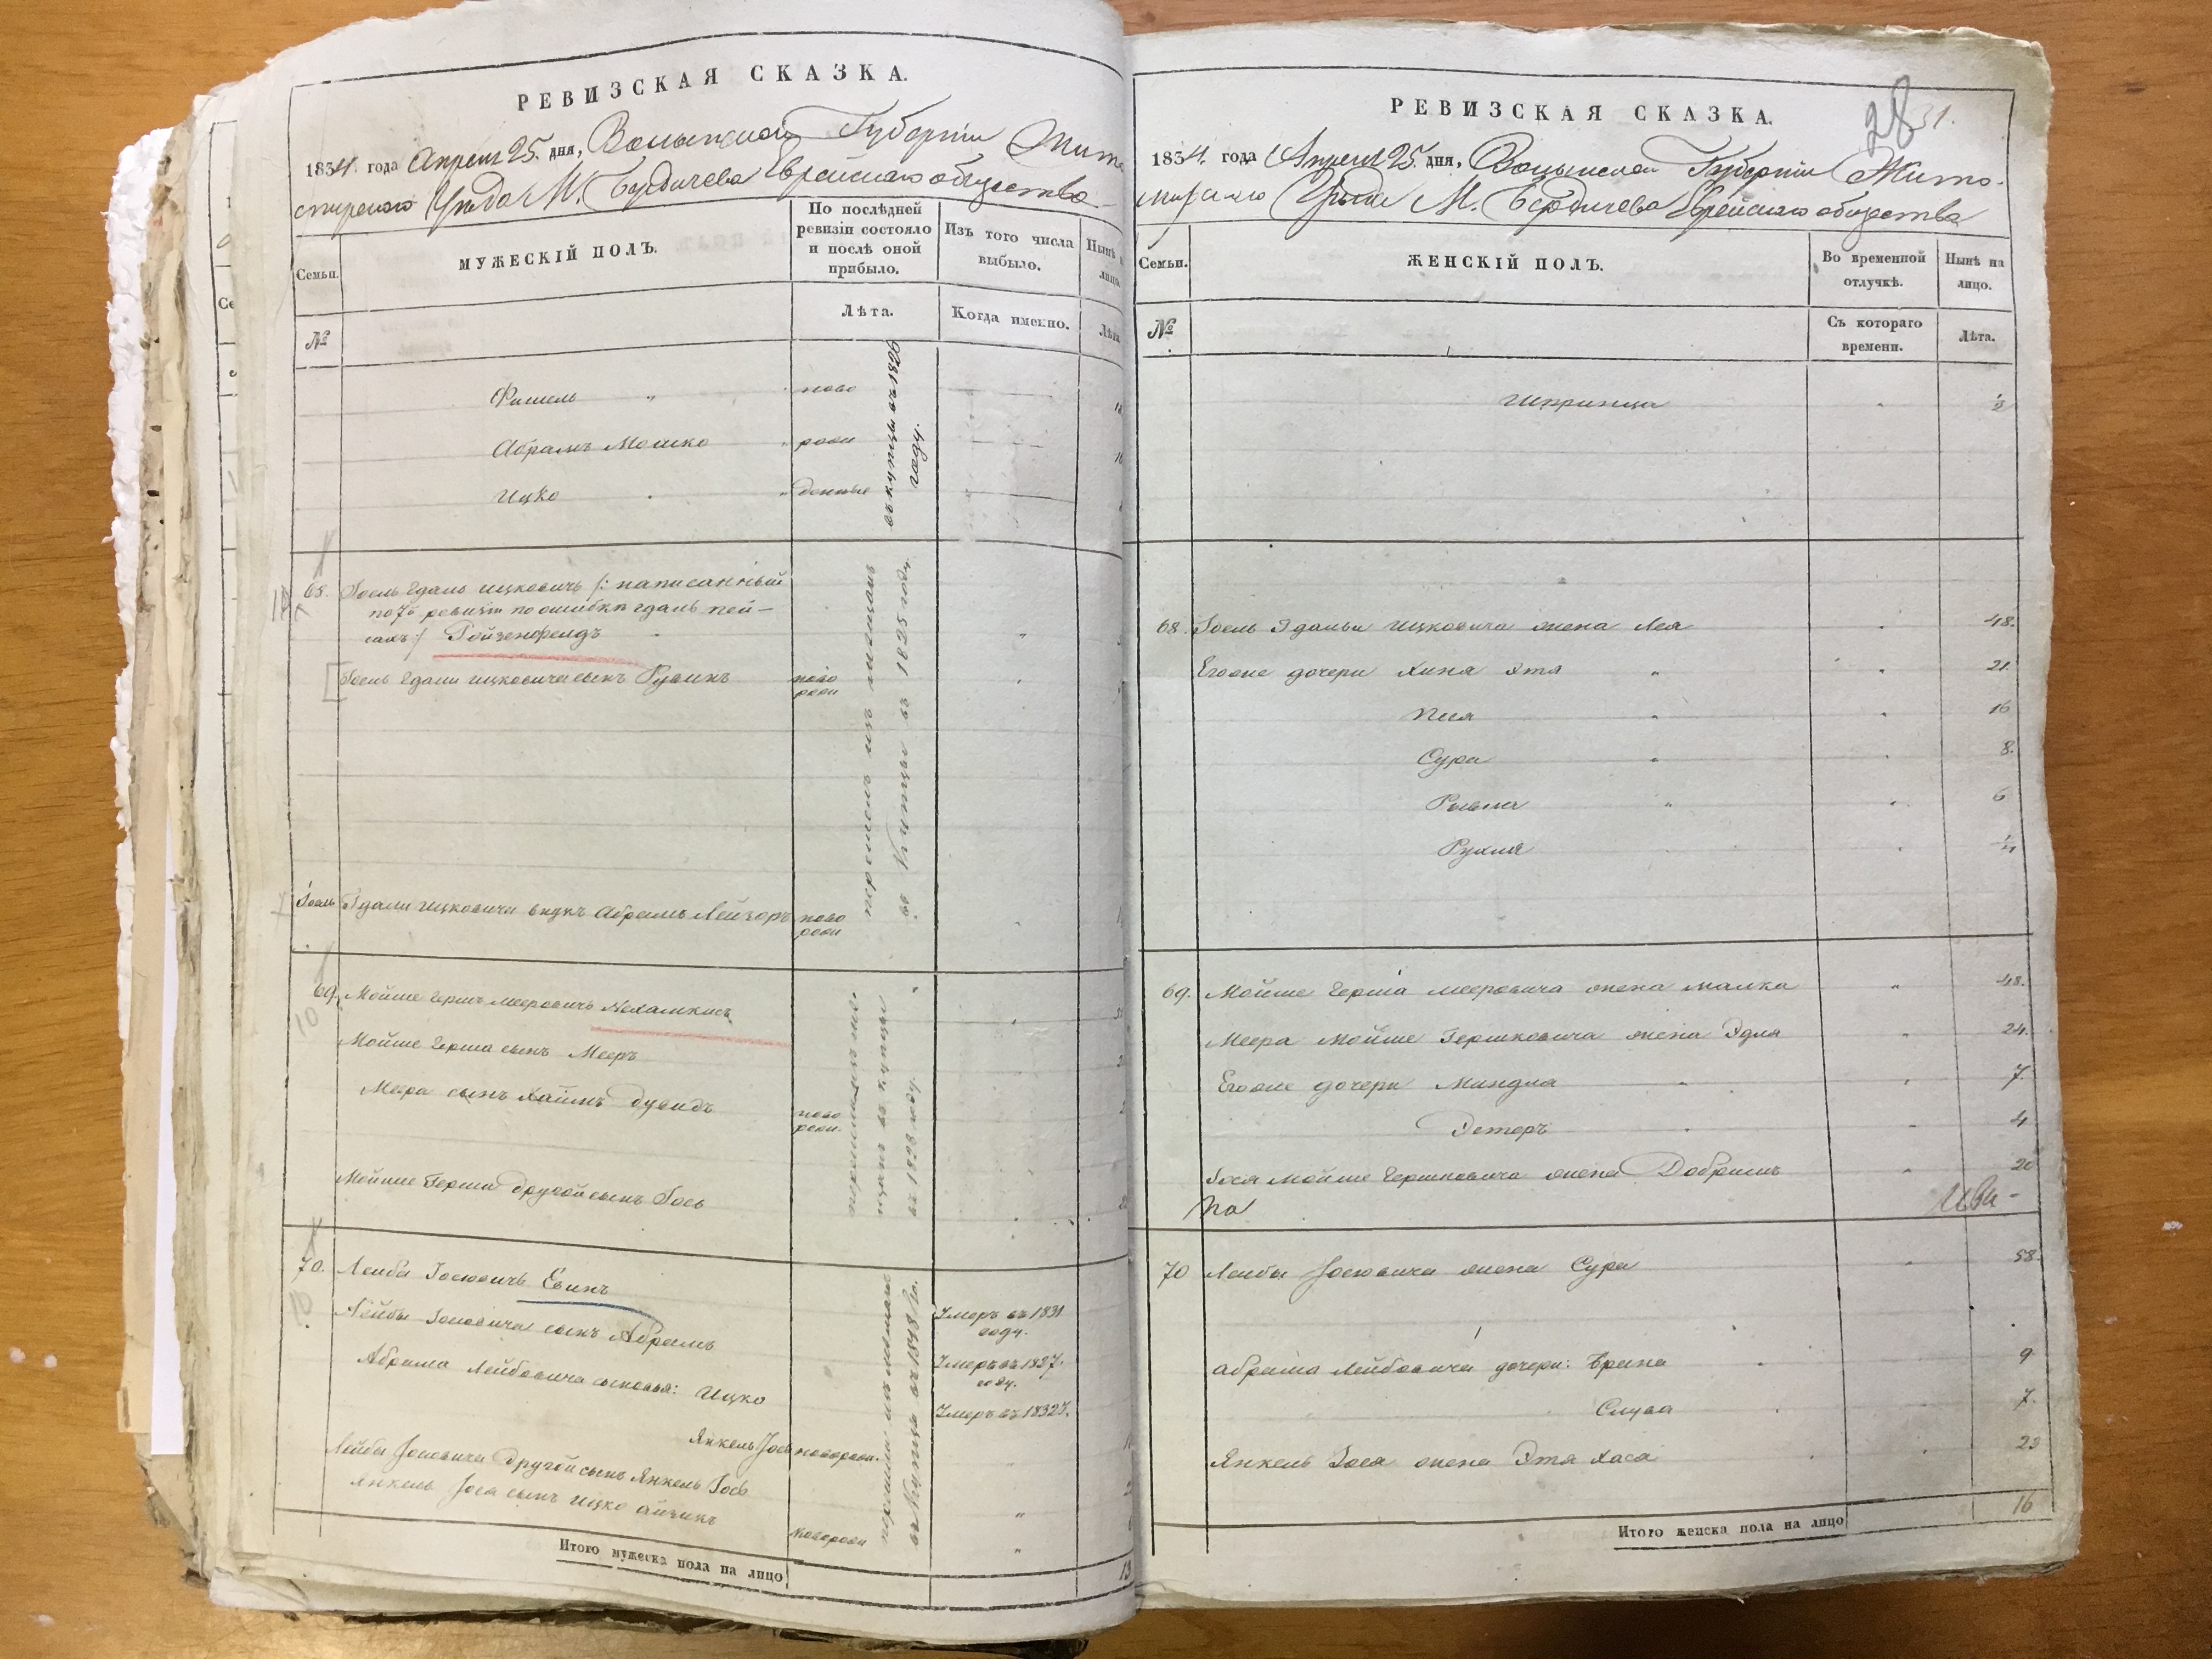 РЕВИЗСКАЯ СКАЗКА.
1834. года Апреля 25. дня, Волынской Губернии Жито
мирского Уезда М. Бердичева Еврейского общества
Семьи.
МУЖЕСКІЙ ПОЛЪ.
По послѣдней ревизіи состояло и послѣ оной прибыло.
Изъ того числа выбыло.
Нынѣ
лицо.
№
Лѣта.
Когда именно.
Лѣта
Фишель " ново
Абрамъ Мошко " рож
Ицко " денные
въ купцы въ 1826
году.
68. Іосль Гдаль Ицковичь /: написанный
по 7й ревизіи по ошибки Гдаль Пей-
сахъ :/ Ройзенфельдъ "
Іосль Гдали Ицковича сынъ Рувинъ ново
рож "
Іосль Гдали Ицковича внукъ Абрамъ Лейзоръ ново
рож
перешелъ изъ мещанъ
въ Купцы въ 1825 году
69. Мойше Гершъ Мееровичъ Нехамкисъ "
Мойше Герша сынъ Мееръ
Меера сынъ Хаимъ Дувидъ ново
рож.
Мойше Герши другой сынъ Іось
щанъ въ купцы
въ 1828 году.
70. Лейба Іосіовичъ Евинъ
Лейбы Іосіовича сынъ Абрамъ Умеръ въ 1831
году.
Абрама Лейбовича сыновья: Ицко Умеръ въ 1827.
году.
Умеръ въ 1832 г.
Янкель Іось новорож.
Лейбы Іосіовича другой сынъ Янкель Іось
Янкель Іося сынъ Ицко Айзикъ новорож "
перешли изъ мещанъ
въ Купцы въ 1828 го.
Итого мужеска пола на лицо
13
28
31.
РЕВИЗСКАЯ СКАЗКА.
1834. года Апреля 25. дня, Волынской Губерніи Жито-
мирского Уезда М. Бердичева Еврейского общества
Семьи.
ЖЕНСКІЙ ПОЛЪ.
Во временной отлучкѣ.
Нынѣ на лицо.
№
Съ котораго времени.
Лѣта.
Шпринца " ½
68. Іосль Гдальи Ицковича жена Лея " 48.
Его же дочери Хина Эта " " 21
Песя " " 16
Сура " " 8.
Рывка " " 6
Рухля "
69. Мойше Герша Мееровича жена Малка " 48.
Меера Мойше Гершковича жена Эдля " 24.
Его же дочери Миндля " " 7.
Эстеръ " " 4
Іося Мойше Гершковича жена Добришъ " 20
70 Лейбы Іосіовича жена Сура " 58.
Абрама Лейбовича дочери: Брана " 9
Слува " 7.
Янкель Іося жена Эта Хася " 23
Итого женска пола на лицо
16